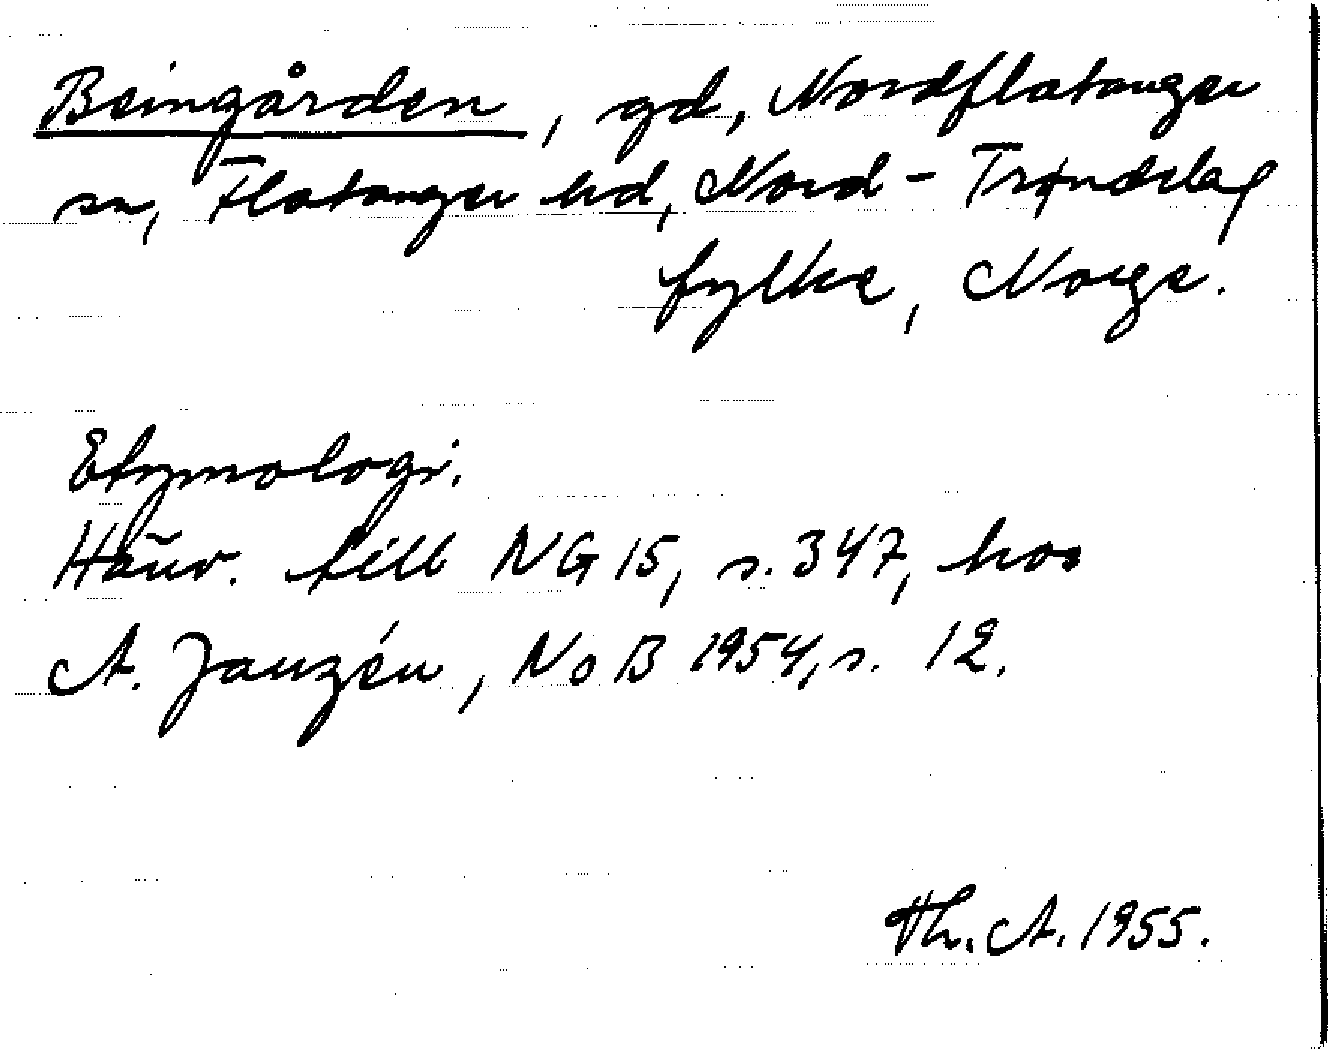 Beingården, gd, Nordflatanger
sn, Flatanger hd, Nord-Trøndelag
fylke, Norge.
Etymologi.
Hänv. till NG 15, s. 347, hos
A. Janzén, NoB 1954, s. 12.
Th. A. 1955.